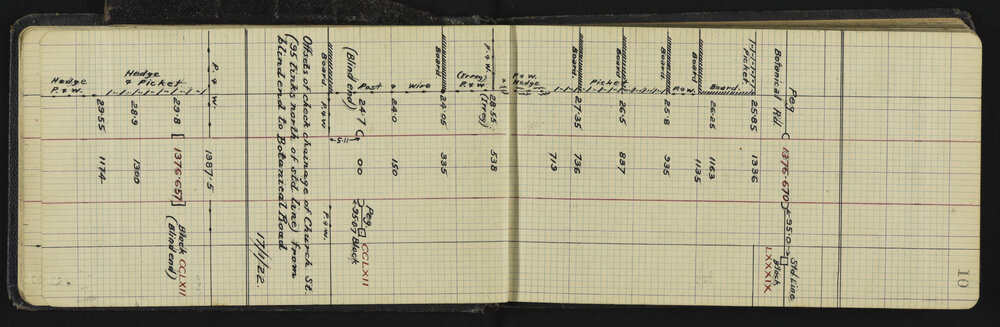 10
Std Line
Block
LXXXIX
Peg C 1376·670 35·0
Botanical Rd.
Picket 25·85 1336
Board. 26·25 1163
Board. 1135
P&W.
Board. 25·8 935
Board 26·5 837
Picket
Board. 27·35 736
713
P.&W.
Hedge
P.&W. 28·55 538
(Irreg) P.&W. (Irreg)
Board. 24·05 335
Wire
&
24·0 150
Post
(Blind end) 24·7 C 00 Peg CCLXII
3507 Block
5·11
Board. P&W P.&W.
Offsets of check chainage of Church St.
(95 links north of old line) from
blind end to Botanical Road
17/1/22.
P.&W. 1387·5
29·8 [1376·657] Block CCLXII
(Blind end)
Hedge
& Picket
28·9 1300
Hedge
P.&W. 29·55 1174